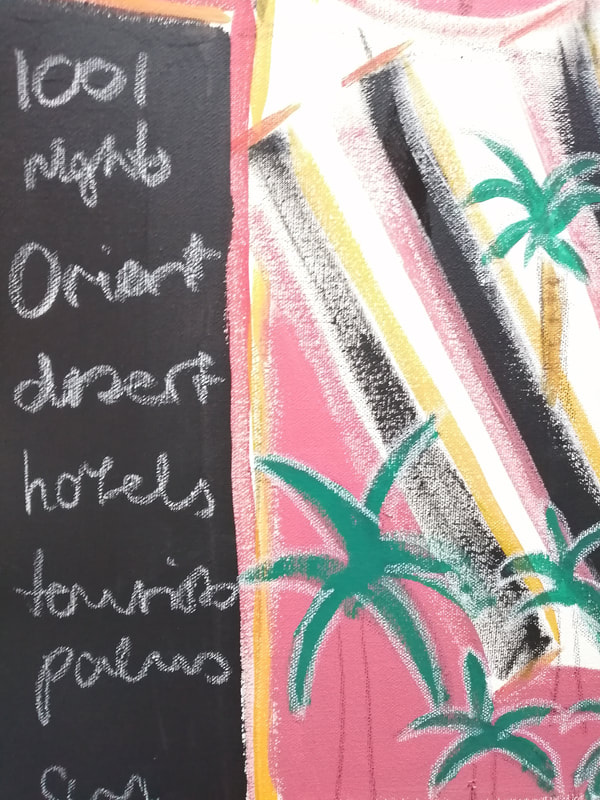 1001
nights
Orient
desert
hotels
tourists
palms